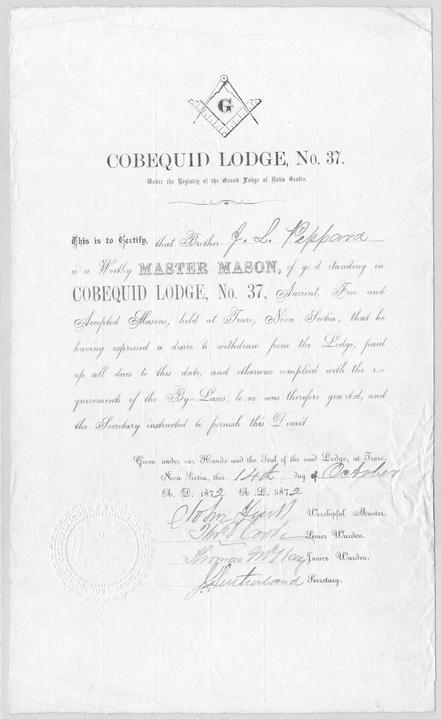 G
COBEQUID LODGE, No. 37.
Under the Registry of the Grand Lodge of Nova Scotia.
This is to Certify, that Brother J. L. Peppard
is a Worthy MASTER MASON, of good standing in
COBEQUID LODGE, No. 37, Ancient, Free and
Accepted Masons, held at Truro, Nova Scotia; that he
having expressed a desire to withdraw from the Lodge, paid
up all dues to this date, and otherwise complied with the re-
quirements of the By-Laws, leave was therefore granted, and
the Secretary instructed to furnish this Dimit.
Given under our Hands and the Seal of the said Lodge, at Truro,
Nova Scotia, this 14th day of October
A. D. 1872 A. L. 5872
John Worshipful Master.
Thos. Cook Senior Warden.
Thomas McKay Junior Warden.
J. Sutherland Secretary.